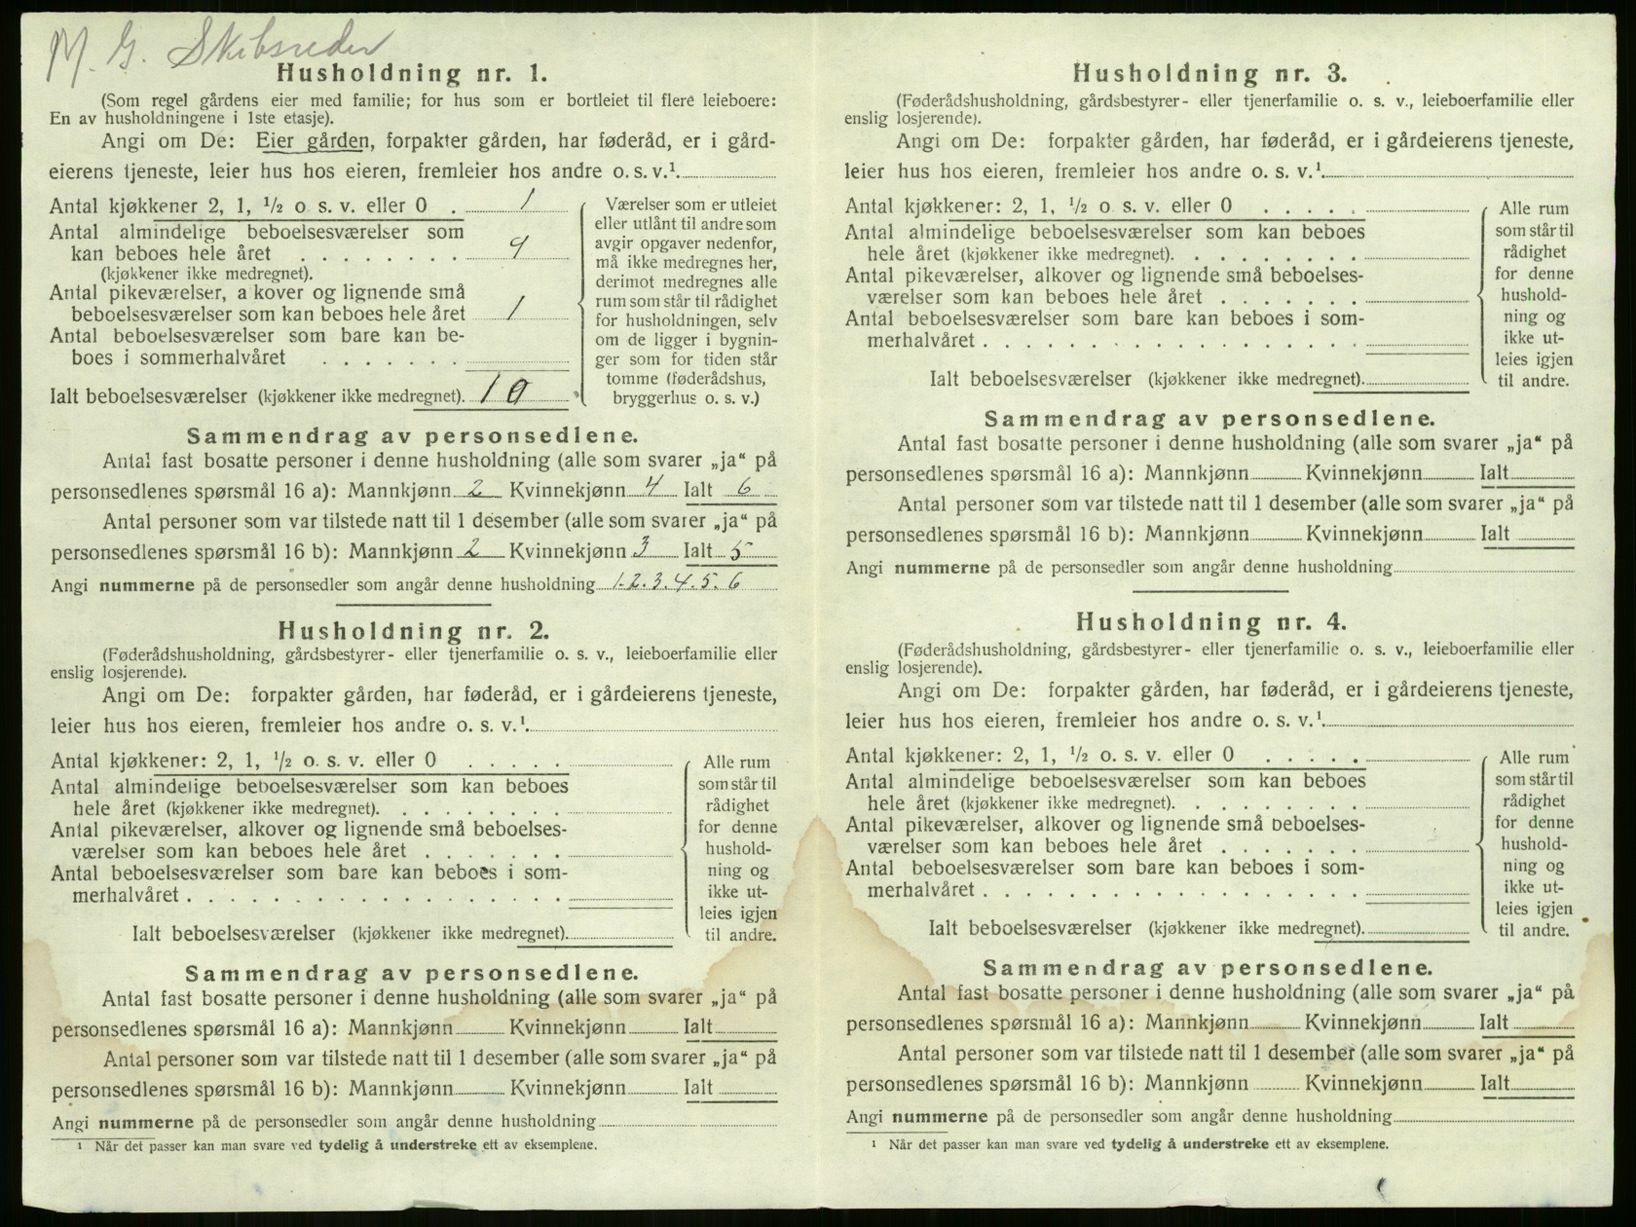 M. G. Skibsreder
Husholdning nr. 1.
(Som regel gårdens eier med familie; for hus som er bortleiet til flere leieboere:
En av husholdningene i 1ste etasje).
Angi om De: Eier gården, forpakter gården, har føderåd, er i gård-
eierens tjeneste, leier hus hos eieren, fremleier hos andre o. s. v.¹
Antal kjøkkener 2, 1, ½ o s. v. eller 0 . 1
Antal almindelige beboelsesværelser som
kan beboes hele året . . . . . . . . 9
(kjøkkener ikke medregnet).
Antal pikeværelser, a kover og lignende små
beboelsesværelser som kan beboes hele året 1
Antal beboelsesværelser som bare kan be-
boes i sommerhalvåret . . . . . . .
Ialt beboelsesværelser (kjøkkener ikke medregnet). 10
Værelser som er utleiet
eller utlånt til andre som
avgir opgaver nedenfor,
må ikke medregnes her,
derimot medregnes alle
rum som står til rådighet
for husholdningen, selv
om de ligger i bygnin-
ger som for tiden står
tomme (føderådshus,
bryggerhus o. s. v.)
Sammendrag av personsedlene.
Antal fast bosatte personer i denne husholdning (alle som svarer „ja“ på
personsedlenes spørsmål 16 a): Mannkjønn 2 Kvinnekjønn 4 Ialt 6
Antal personer som var tilstede natt til 1 desember (alle som svarer „ja“ på
personsedlenes spørsmål 16 b): Mannkjønn 2 Kvinnekjønn 3 Ialt 5
Angi nummerne på de personsedler som angår denne husholdning 1. 2. 3. 4. 5. 6
Husholdning nr. 2.
(Føderådshusholdning, gårdsbestyrer- eller tjenerfamilie o. s. v., leieboerfamilie eller
enslig losjerende).
Angi om De: forpakter gården, har føderåd, er i gårdeierens tjeneste,
leier hus hos eieren, fremleier hos andre o. s. v.¹
Antal kjøkkener: 2, 1, ½ o. s. v. eller 0 . . . . .
Antal almindelige beboelsesværelser som kan beboes
hele året (kjøkkener ikke medregnet). . . . . . . . .
Antal pikeværelser, alkover og lignende små beboelses-
værelser som kan beboes hele året . . . . . . .
Antal beboelsesværelser som bare kan beboes i som-
merhalvåret . . . . . . . . . . . . . . . . .
Ialt beboelsesværelser (kjøkkener ikke medregnet).
Alle rum
som står til
rådighet
for denne
hushold-
ning og
ikke ut-
leies igjen
til andre.
Sammendrag av personsedlene.
Antal fast bosatte personer i denne husholdning (alle som svarer „ja“ på
personsedlenes spørsmål 16 a): Mannkjønn Kvinnekjønn Ialt
Antal personer som var tilstede natt til 1 desember (alle som svarer „ja“ på
personsedlenes spørsmål 16 b): Mannkjønn Kvinnekjønn Ialt
Angi nummerne på de personsedler som angår denne husholdning
¹ Når det passer kan man svare ved tydelig å understreke ett av eksemplene.
Husholdning nr. 3.
(Føderådshusholdning, gårdsbestyrer- eller tjenerfamilie o. s. v., leieboerfamilie eller
enslig losjerende).
Angi om De: forpakter gården, har føderåd, er i gårdeierens tjeneste,
leier hus hos eieren, fremleier hos andre o. s. v.¹
Antal kjøkkener: 2, 1, ½ o. s. v. eller 0 . . . . .
Antal almindelige beboelsesværelser som kan beboes
hele året (kjøkkener ikke medregnet). . . . . . . . .
Antal pikeværelser, alkover og lignende små beboelses-
værelser som kan beboes hele året . . . . . . .
Antal beboelsesværelser som bare kan beboes i som-
merhalvåret . . . . . . . . . . . . . . . . .
Ialt beboelsesværelser (kjøkkener ikke medregnet).
Alle rum
som står til
rådighet
for denne
hushold-
ning og
ikke ut-
leies igjen
til andre.
Sammendrag av personsedlene.
Antal fast bosatte personer i denne husholdning (alle som svarer „ja“ på
personsedlenes spørsmål 16 a): Mannkjønn Kvinnekjønn Ialt
Antal personer som var tilstede natt til 1 desember (alle som svarer „ja“ på
personsedlenes spørsmål 16 b): Mannkjønn Kvinnekjønn Ialt
Angi nummerne på de personsedler som angår denne husholdning
Husholdning nr. 4.
(Føderådshusholdning, gårdsbestyrer- eller tjenerfamilie o. s. v., leieboerfamilie eller
enslig losjerende).
Angi om De: forpakter gården, har føderåd, er i gårdeierens tjeneste,
leier hus hos eieren, fremleier hos andre o. s. v.¹
Antal kjøkkener: 2, 1, ½ o. s. v. eller 0 . . . . .
Antal almindelige beboelsesværelser som kan beboes
hele året (kjøkkener ikke medregnet). . . . . . . . .
Antal pikeværelser, alkover og lignende små beboelses-
værelser som kan beboes hele året . . . . . . .
Antal beboelsesværelser som bare kan beboes i som-
merhalvåret . . . . . . . . . . . . . . . . .
Ialt beboelsesværelser (kjøkkener ikke medregnet).
Alle rum
som står til
rådighet
for denne
hushold-
ning og
ikke ut-
leies igjen
til andre.
Sammendrag av personsedlene.
Antal fast bosatte personer i denne husholdning (alle som svarer „ja“ på
personsedlenes spørsmål 16 a): Mannkjønn Kvinnekjønn Ialt
Antal personer som var tilstede natt til 1 desember (alle som svarer „ja“ på
personsedlenes spørsmål 16 b): Mannkjønn Kvinnekjønn Ialt
Angi nummerne på de personsedler som angår denne husholdning
¹ Når det passer kan man svare ved tydelig å understreke ett av eksemplene.